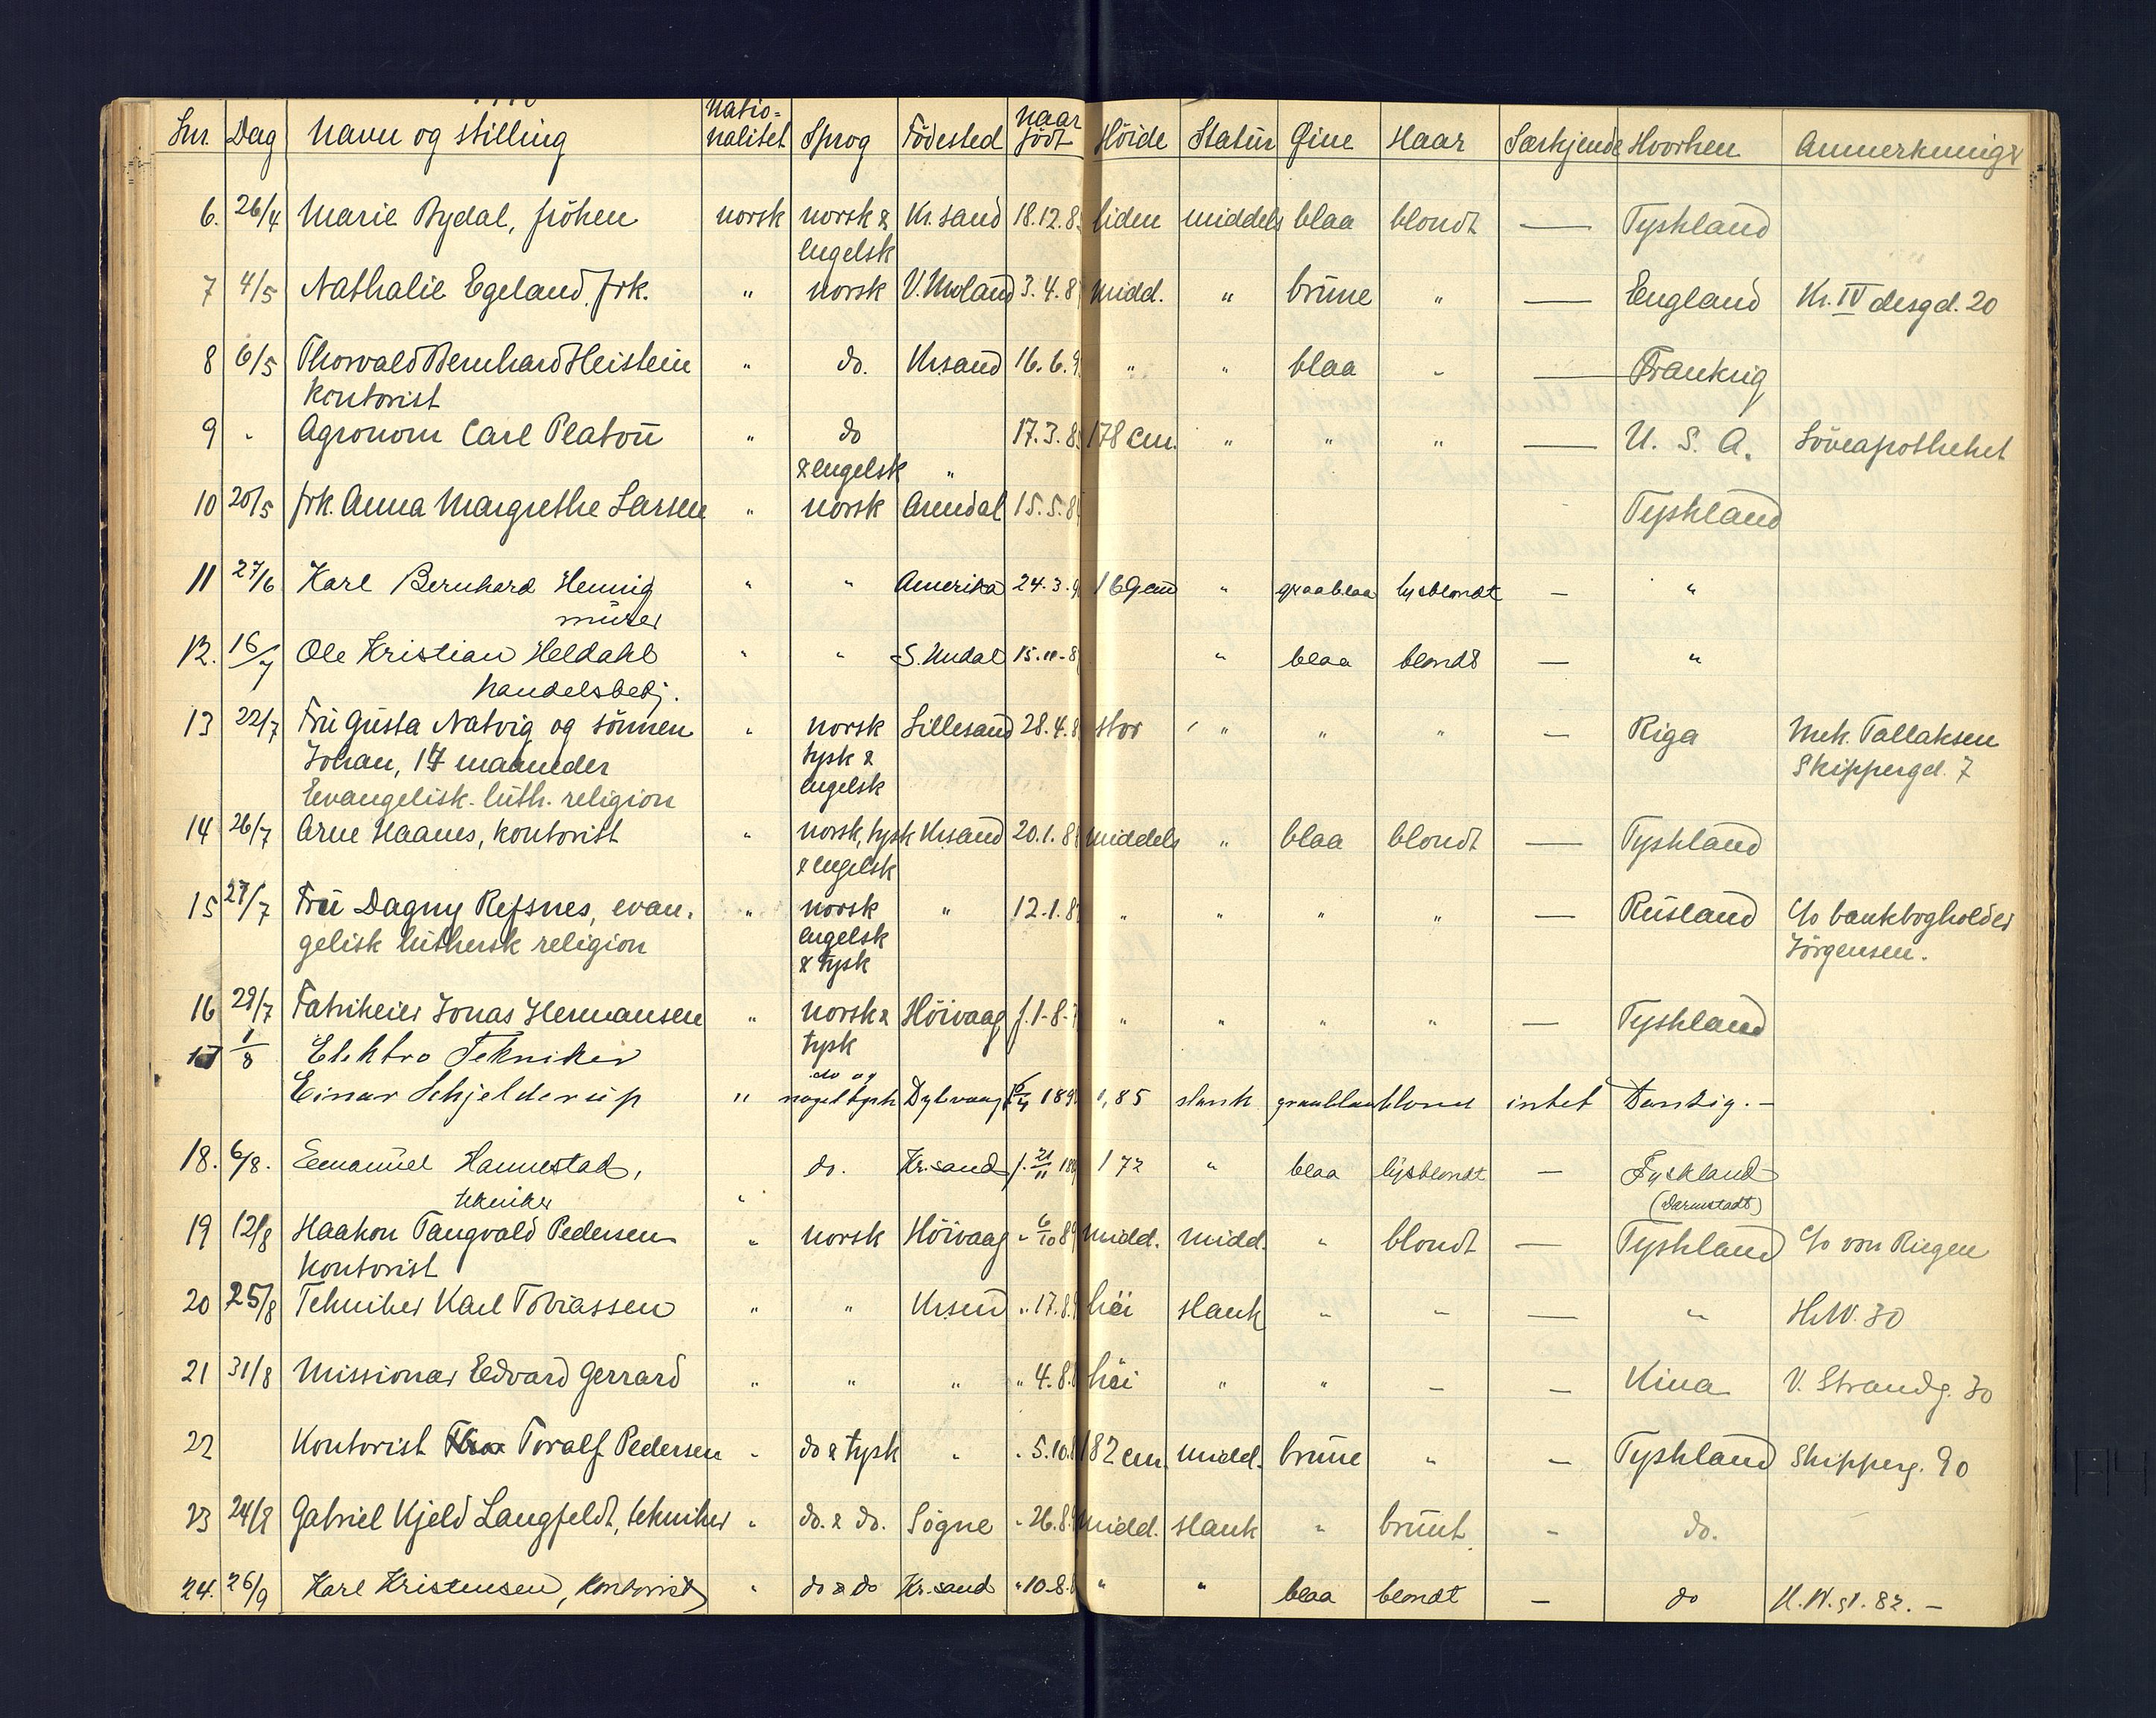 Lnr. Dag Navn og stilling Natio-nalitet Sprog Födested Naar födt Höide Statur Øine Haar Særkjende Hvorhen Anmerkninger
6. 26/4 Marie Rydal, fröken norsk norsk & Kr.sand 18.12.8 liden middels blaa blondt — Tyskland
engelsk
7 4/5 Nathalie Egeland, frk. " norsk V. Moland 3.4.8 Midd. " brune " — England Kr. IV desgd. 20
8 6/5 Thorvald Bernhard Heistein " do. Krsand 16.6.9 " " blaa " — Frankrig
kontorist
9 " Agronom Carl Platou " do 17.3.8 178 cm. " " " — U. S. A. Löveapotheket
& engelsk "
10 20/5 frk. Anna Margrethe Larsen " norsk Arendal 15.5.8 Tyskland
11 27/6 Karl Bernhard Hennig " " Amerika 24.3.9 169 cm " graablaa lysblondt — "
murer
12. 16/7 Ole Kristian Heldahl " " S. Undal 15.11.8 " blaa blondt — "
handelsbetj.
13 22/7 Fru Gusta Natvig og sönnen " norsk Lillesand 28.4.8 stor " " " — Riga Mek. Tallaksen
Johan, 14 maaneder tysk & Skippergd. 7
Evangelisk. luth. religion engelsk
14 26/7 Arne Haanes, kontorist " norsk, tysk Krsand 20.1.8 Middels " blaa blondt — Tyskland
& engelsk
15 27/7 Fru Dagny Refsnes, evan- " norsk " 12.1.8 " " " " — Rusland c/o bankbogholder
gelisk luthersk religion engelsk Jörgensen.
& tysk
16 29/7 Fabrikeier Jonas Hermansen " norsk & Höivaag f. 1-8-7 " " " " — Tyskland
tysk
17 1/8 Elektro Tekniker do og
Einar Schjelderup " noget tysk Dybvaag 189 1,85 slank graablaa blond intet Danzig. —
18. 6/8. Emanuel Hannestad, do. Kr.sand f. 21/11 18 172 " blaa lysblondt — Tyskland
tekniker " (Darmstadt)
19 12/8 Haakon Tangvald Pedersen " norsk Höivaag " 6/10 8 Midd. midd. " blondt — Tyskland c/o von Riegen
kontorist
20 25/8 Tekniker Karl Tobiassen " " Krsund " 17.8. höi slank " " — " H.W. 30
21 31/8 Missionær Edvard Gerrard " " " " 4.8. höi " " — — Kina V. Strandg. 30
22 Kontorist Toralf Pedersen " do & tysk " " 5.10. 182 cm. midd. brune " — Tyskland Skipperg. 90
23 24/9 Gabriel Kjeld Langfeldt, tekniker " do. & do. Sögne " 26.8. Midd. slank " brunt. — do.
24. 26/9 Karl Kristensen, kontorist " do & do Kr.sand " 10.8. " " blaa blondt — do K.IV.gt. 82. —